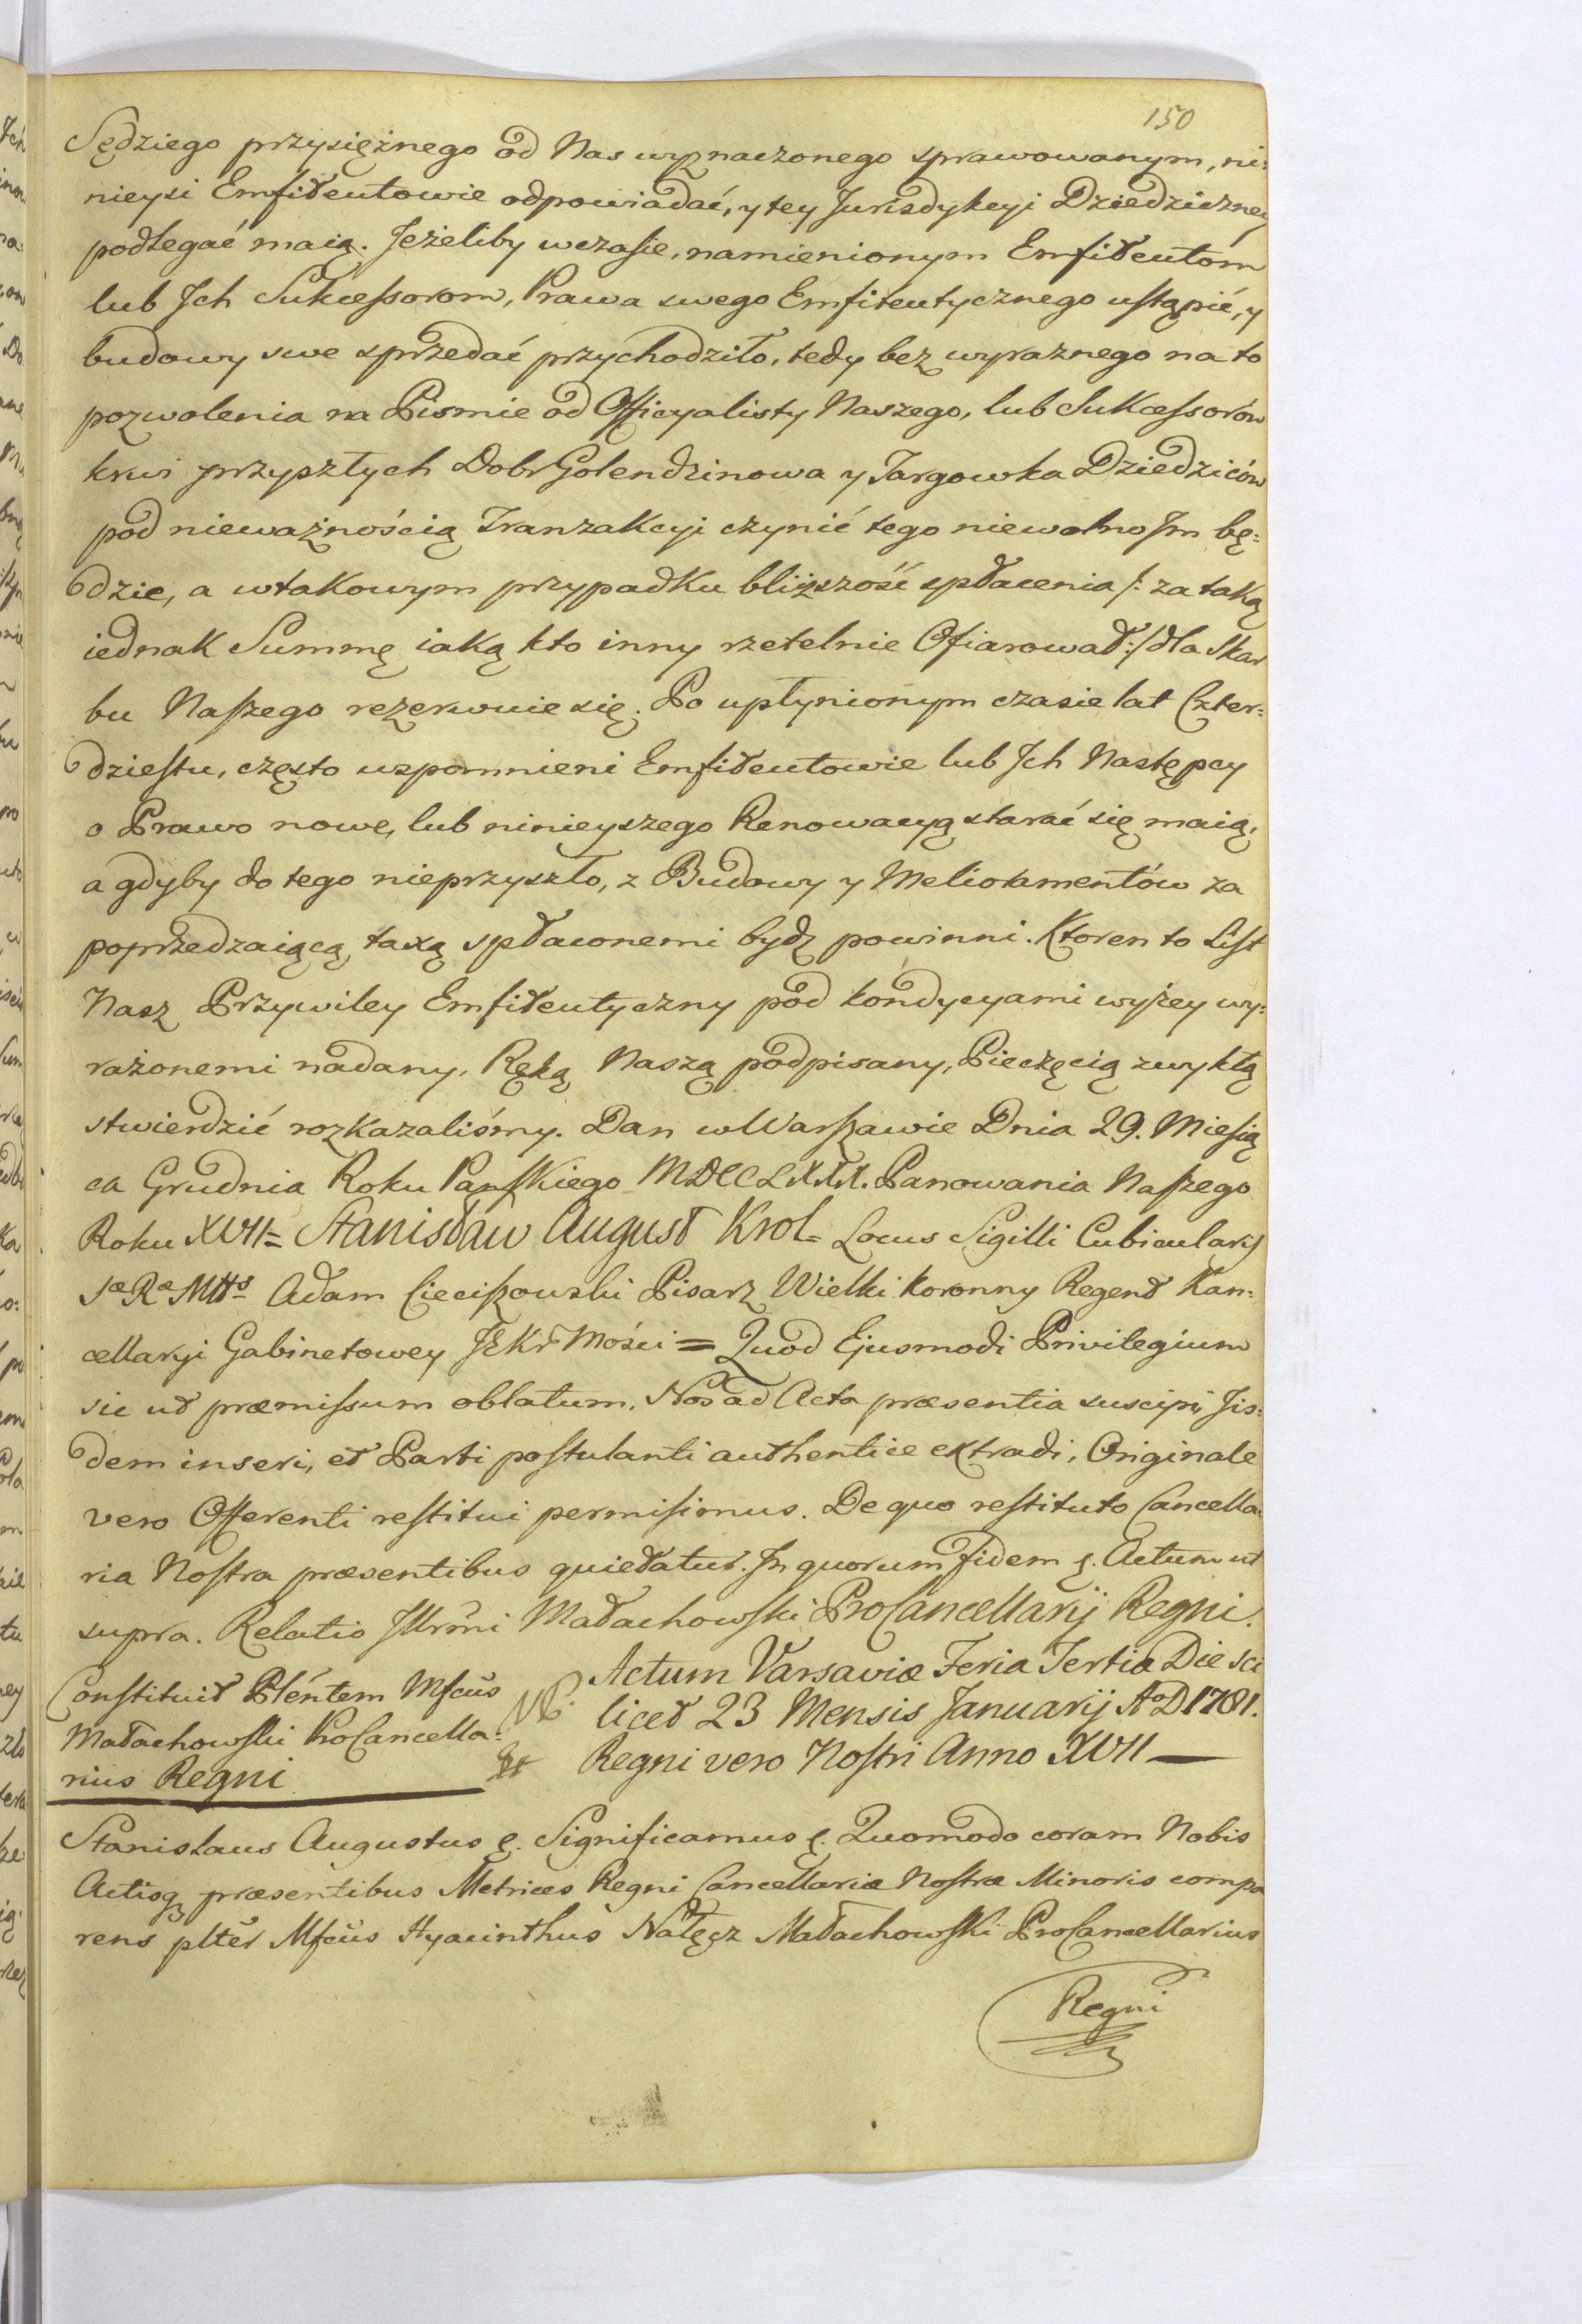 150
Sędziego przysiężnego od Nas wyznaczonego sprawowanym, ni=
nieysi Emfiteutowie odpowiadać, y tey Jurisdykcyi Dziedziczney
podlegać maią. Jeżeliby wczasie, namienionym Emfiteutom
lub Jch Sukcessorom, Prawa swego Emfiteutycznego ustąpić, y
budowy swe sprzedać przychodziło, tedy bez wyraznego na to
pozwolenia na Pismie od Officyalisty Naszego, lub Sukcessorów
krwi przyszłych Dobr Golendzinowa y Targowka Dziedziców
pod nieważnością Tranzakcyi czynić tego niewolno Jm bę=
dzie, a wtakowym przypadku bliższość spłacenia /: za taką
iednak Summę iaką kto inny rzetelnie Ofiarował :/ dla Skar
bu Naszego rezerwuie się. Po upłynionym czasie lat Czter=
dziestu, często wspomnieni Emfiteutowie lub Jch Następcy
o Prawo nowe, lub ninieyszego Renowacyą starać się maią,
a gdyby do tego nieprzyszło, z Budowy y Melioramentów za
poprzedzaiącą taxą spłaconemi bydz powinni. Ktoren to List
Nasz Przywiley Emfiteutyczny pod kondycyami wyżey wy=
rażonemi nadany, Ręką Naszą podpisany, Pieczęcią zwykłą
stwierdzić rozkazaliśmy. Dan w Warszawie Dnia 29. Miesią
ca Grudnia Roku Pańskiego MDCCLXXX. Panowania Naszego
Roku XVII= Stanisław August Krol= Locus Sigilli Cubicularis
Sæ Ræ Mttis Adam Cieciszowski Pisarz Wielki Koronny Regent Kan=
cellaryi Gabinetowey JKr Mości = Quod Ejusmodi Privilegium
sic ut præmissum oblatum, Nos ad Acta præsentia suscipi, Jis=
dem inseri, et Parti postulanti authentice extradi, Originale
vero Offerenti restitui permisimus. De quo restituto Cancella=
ria Nostra præsentibus quietatur. Jn quorum fidem &. Actum ut
supra. Relatio Jllrmi Małachowski ProCancellarij Regni.
Constituit Plentem Mfcus
Małachowski ProCancella=
rius Regni
Actum Varsaviæ Feria Tertia Die sci
licet 23 Mensis Januarij Ao D 1781.
Regni vero Nostri Anno XVII —
Stanislaus Augustus &. Significamus &. Quomodo coram Nobis
Actisq præsentibus Metrices Regni Cancellariæ Nostræ Minoris compa
rens plter Mfcus Hyacinthus Nałęcz Małachowski ProCancellarius
Regni